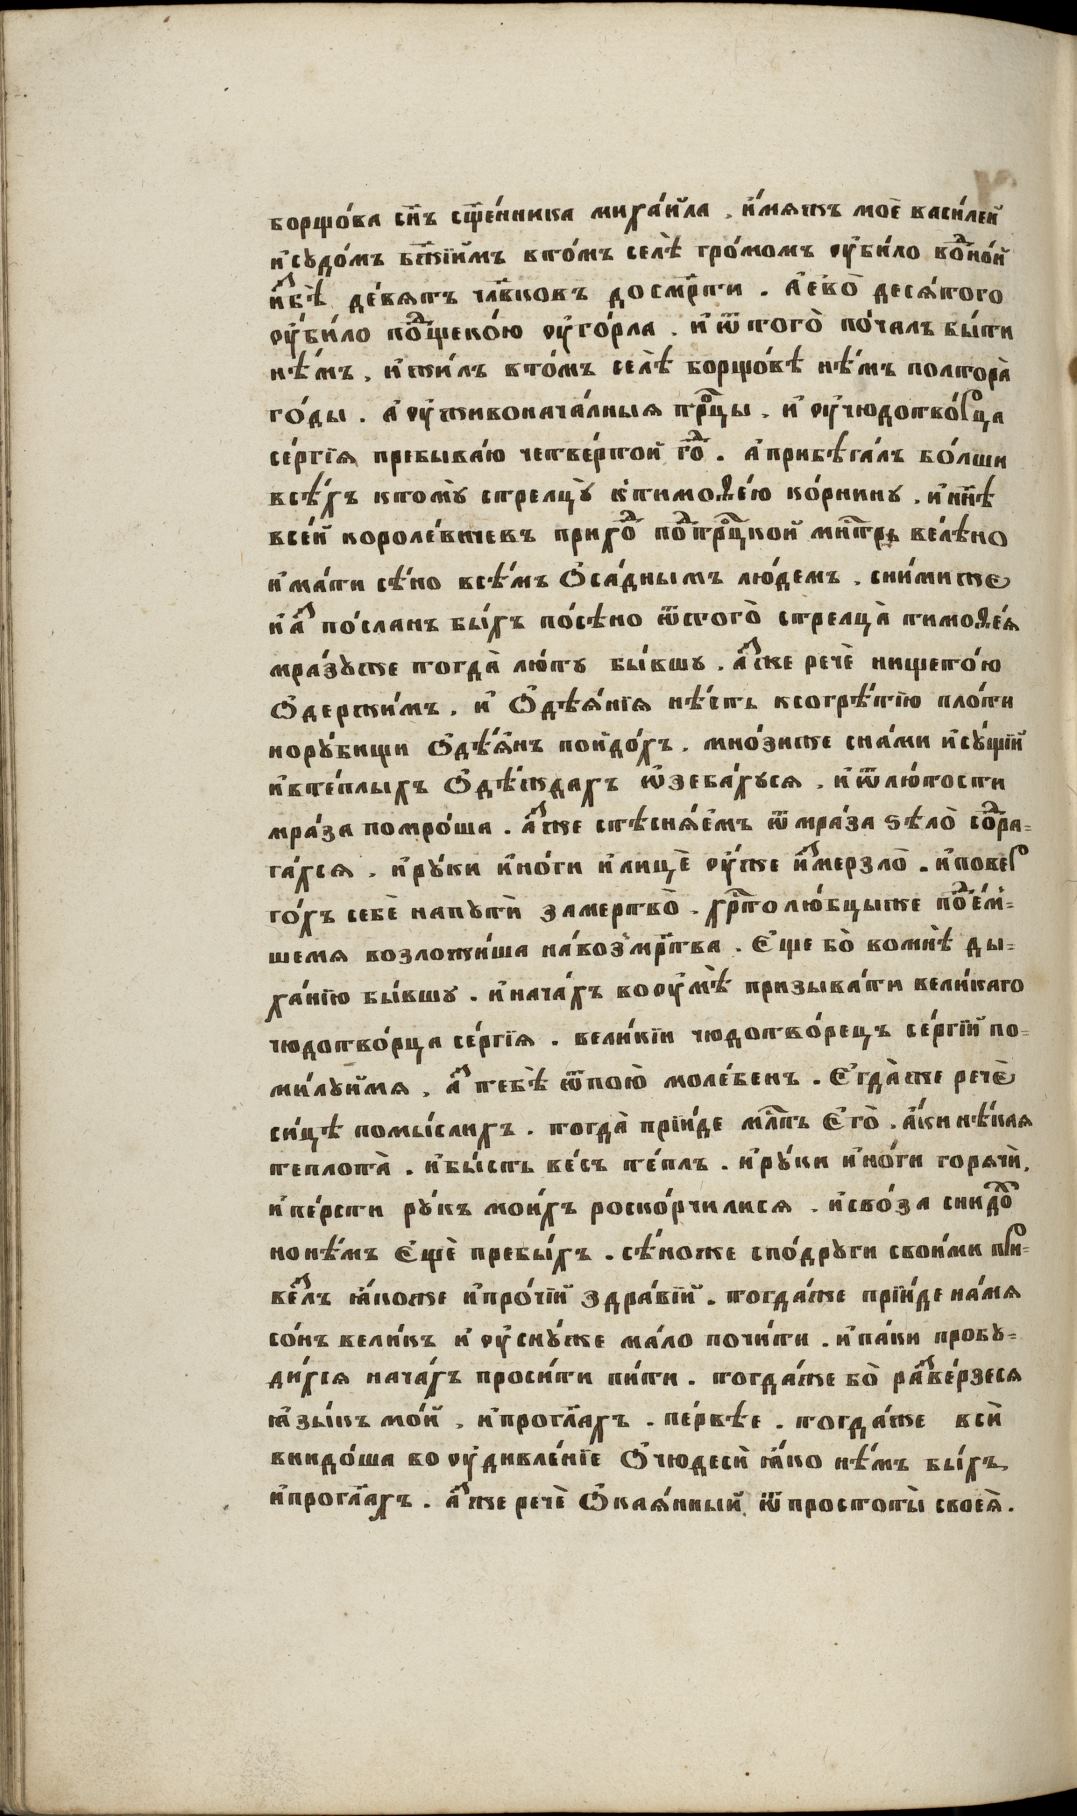 борщо́ва сн҃ъ сщ҃е́нника миха́йла . и҆мяжъ моѐ васи́лей
и҆судо́мъ бж҃і́имъ вто́мъ селѣ̀ гро́момъ оу҆би́ло воⷣно́й
и҆ⷥбѣ̀ де́вять чл҃вковъ досмр҃ти . а҆ево̀ деся́того
оу҆би́ло поⷣщеко́ю оу҆го́рла . и҆ ѿ того̀ по́чалъ бы́ти
нѣ́мъ . и҆ жи́лъ вто́мъ селѣ̀ борщо́вѣ нѣ́мъ полтора̀
го́ды . а҆ оу҆живонача́лныя трⷪ҇цы . и҆ оу҆чюдотво́рца
се́ргїя пребыва́ю четве́ртой гоⷣ . а҆прибѣга́лъ бо́лши
всѣ́хъ ктому̀ стрелцу̀ к̾тимоѳе́ю ко́рнину . и҆ нн҃ѣ
все́й короле́вичевъ прихоⷣ поⷣтрⷪ҇цкой мнⷭ҇трь ве́лѣно
и҆ма́ти сѣ́но всѣ́мъ Ѻ҆са́днымъ лю́демъ . сни́миже
и҆ а҆ⷥ по́сланъ бы́хъ посѣ́но ѿстого̀ стрелца̀ тимоѳе́я
мра́зуже тогда̀ лю́ту бы́вшу . а҆ⷥже речѐ нището́ю
Ѻ҆держи́мъ . и҆ Ѻ҆дѣя́нїя нѣ́сть ксогрѣ́тїю пло́ти
нору́бищи Ѻ҆дѣ́янъ пойдо́хъ . мно́зиже сна́ми и҆су́щїй
и҆вте́плыхъ Ѻ҆дѣ́ждахъ ѡ҆зеба́хуся . и҆ ѿлю́тости
мра́за помро́ша . а҆ⷥже стѣсня́емъ ѿ мра́за ѕѣло̀ соⷣра-
га́хся . и҆ ру́ки и҆но́ги и҆ лицѐ оу҆́же и҆ⷥмерзло̀ . и҆ повер
го́хъ себѐ напути̑ замертво̀ . хрⷭ҇толю́бцыже поⷣе́м-
шемя возложи́ша на́воз̾мр҃тва . Е҆ще бо̀ вомнѣ̀ ды-
ха́нїю бы́вшу . и҆ нача́хъ во оу҆мѣ̀ призыва́ти вели́каго
чюдотво́рца се́ргїя . вели́кїи чюдотво́рецъ се́ргїй по-
ми́луймя . а҆ⷥ тебѣ̀ ѿпою̀ моле́бенъ . Е҆гда̀же речѐ
си́цѣ помы́слихъ . тогда̀ прїи́де млⷭ҇ть Е҆го̀ . а҆́ки нѣ́кая
теплота̀ . и҆бы́сть ве́сь те́плъ . и҆ ру́ки и҆ но́ги горячи̑ .
и҆ пе́рсти ру́къ мои́хъ роско́рчилися . и҆сво́за снидоⷯ
нонѣ́мъ Е҆щѐ пребы́хъ . сѣ́ноже спо́други свои́ми при-
веⷥлъ ꙗ҆́коже и҆про́чїй здра́вїй . тогда́же прїи́де на́мя
со́нъ вели́къ и҆ оу҆сну́же ма́ло почи́ти . и҆ па́ки пробу-
ди́хся нача́хъ проси́ти пи́ти . тогда́же бо̀ раⷥве́рзеся
ꙗ҆зы́къ мо́й . и҆прогл҃ахъ . пе́рвѣе . тогда́же всѝ
внидо́ша во оу҆дивле́нїе Ѻ҆ чюдесѝ ꙗ҆́ко нѣ́мъ бы́хъ
и҆прогл҃ахъ . а҆ⷥже речѐ Ѻ҆кая́нный ѿ простоты̀ своея̀ .